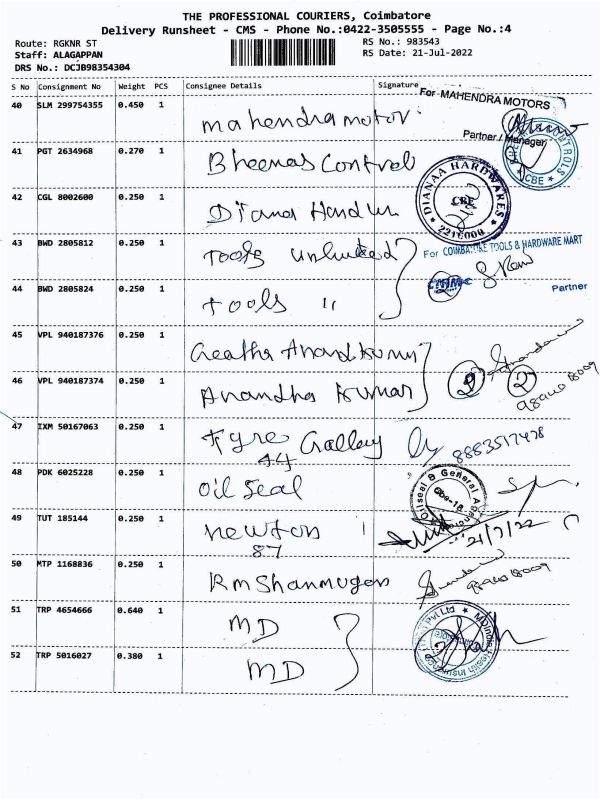 THE PROFESSIONAL COURIERS, Coimbatore
Delivery Runsheet - CMS - Phone No.:0422-3505555 - Page No.:4
Route: RGKNR ST
RS No.: 983543
Staff: ALAGAPPAN
RS Date: 21-Jul-2022
DRS No.: DCJB98354304
S No Consignment No Weight PCS Consignee Details Signature
For MAHENDRA MOTORS
40 SLM 299754355 0.450 1 mahendra motor
Partner / Manager
CONTROLS
CBE
41 PGT 2634968 0.270 1 Bheenas Control
DIANAA HARDWARES
CBE
42 CGL 8002600 0.250 1 Diana
43 BWD 2805812 0.250 1 Tools unlimited
For COIMBATORE TOOLS & HARDWARE MART
44 BWD 2805824 0.250 1 Tools "
Partner
45 VPL 940187376 0.250 1 Geetha Anandkumar
46 VPL 940187374 0.250 1 Anandha Kumar 2
47 IXM 50167063 0.250 1 Tyre Galley 8883517478
44
48 PDK 6025228 0.250 1 oil seal
Oilseal & General Agency
Cbe-18
49 TUT 185144 0.250 1 newton
87
21/7/22
50 MTP 1168836 0.250 1 R m Shanmugam
51 TRP 4654666 0.640 1 MD
52 TRP 5016027 0.380 1 MD
MDIndia Health Insurance Pvt Ltd